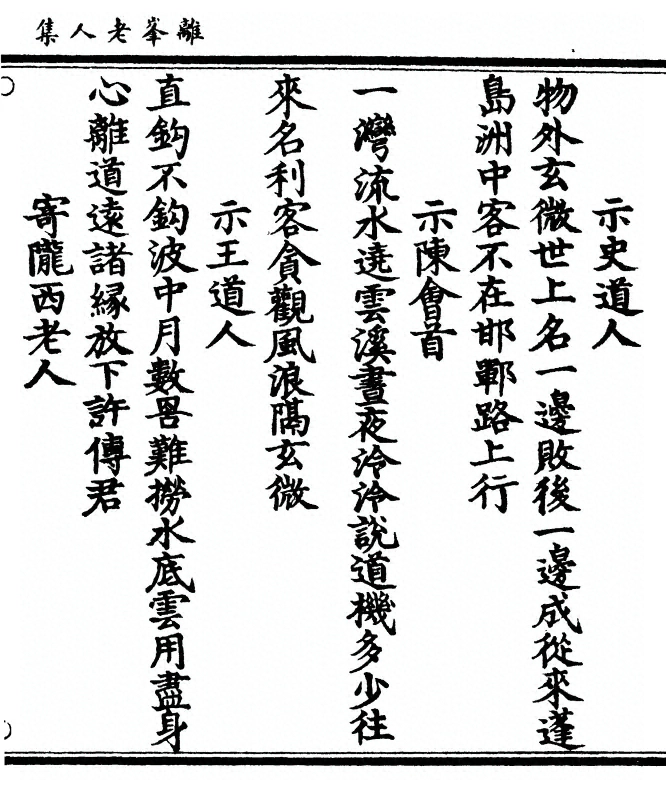 離峯老人集
示史道人
物外玄微世上名一邊敗後一邊成從來蓬
島洲中客不在邯鄲路上行
示陳會首
一灣流水遶雲溪晝夜泠泠說道機多少往
來名利客貪觀風浪隔玄微
示王道人
直鈎不鈎波中月數罟難撈水底雲用盡身
心離道遠諸縁放下許傳君
寄隴西老人